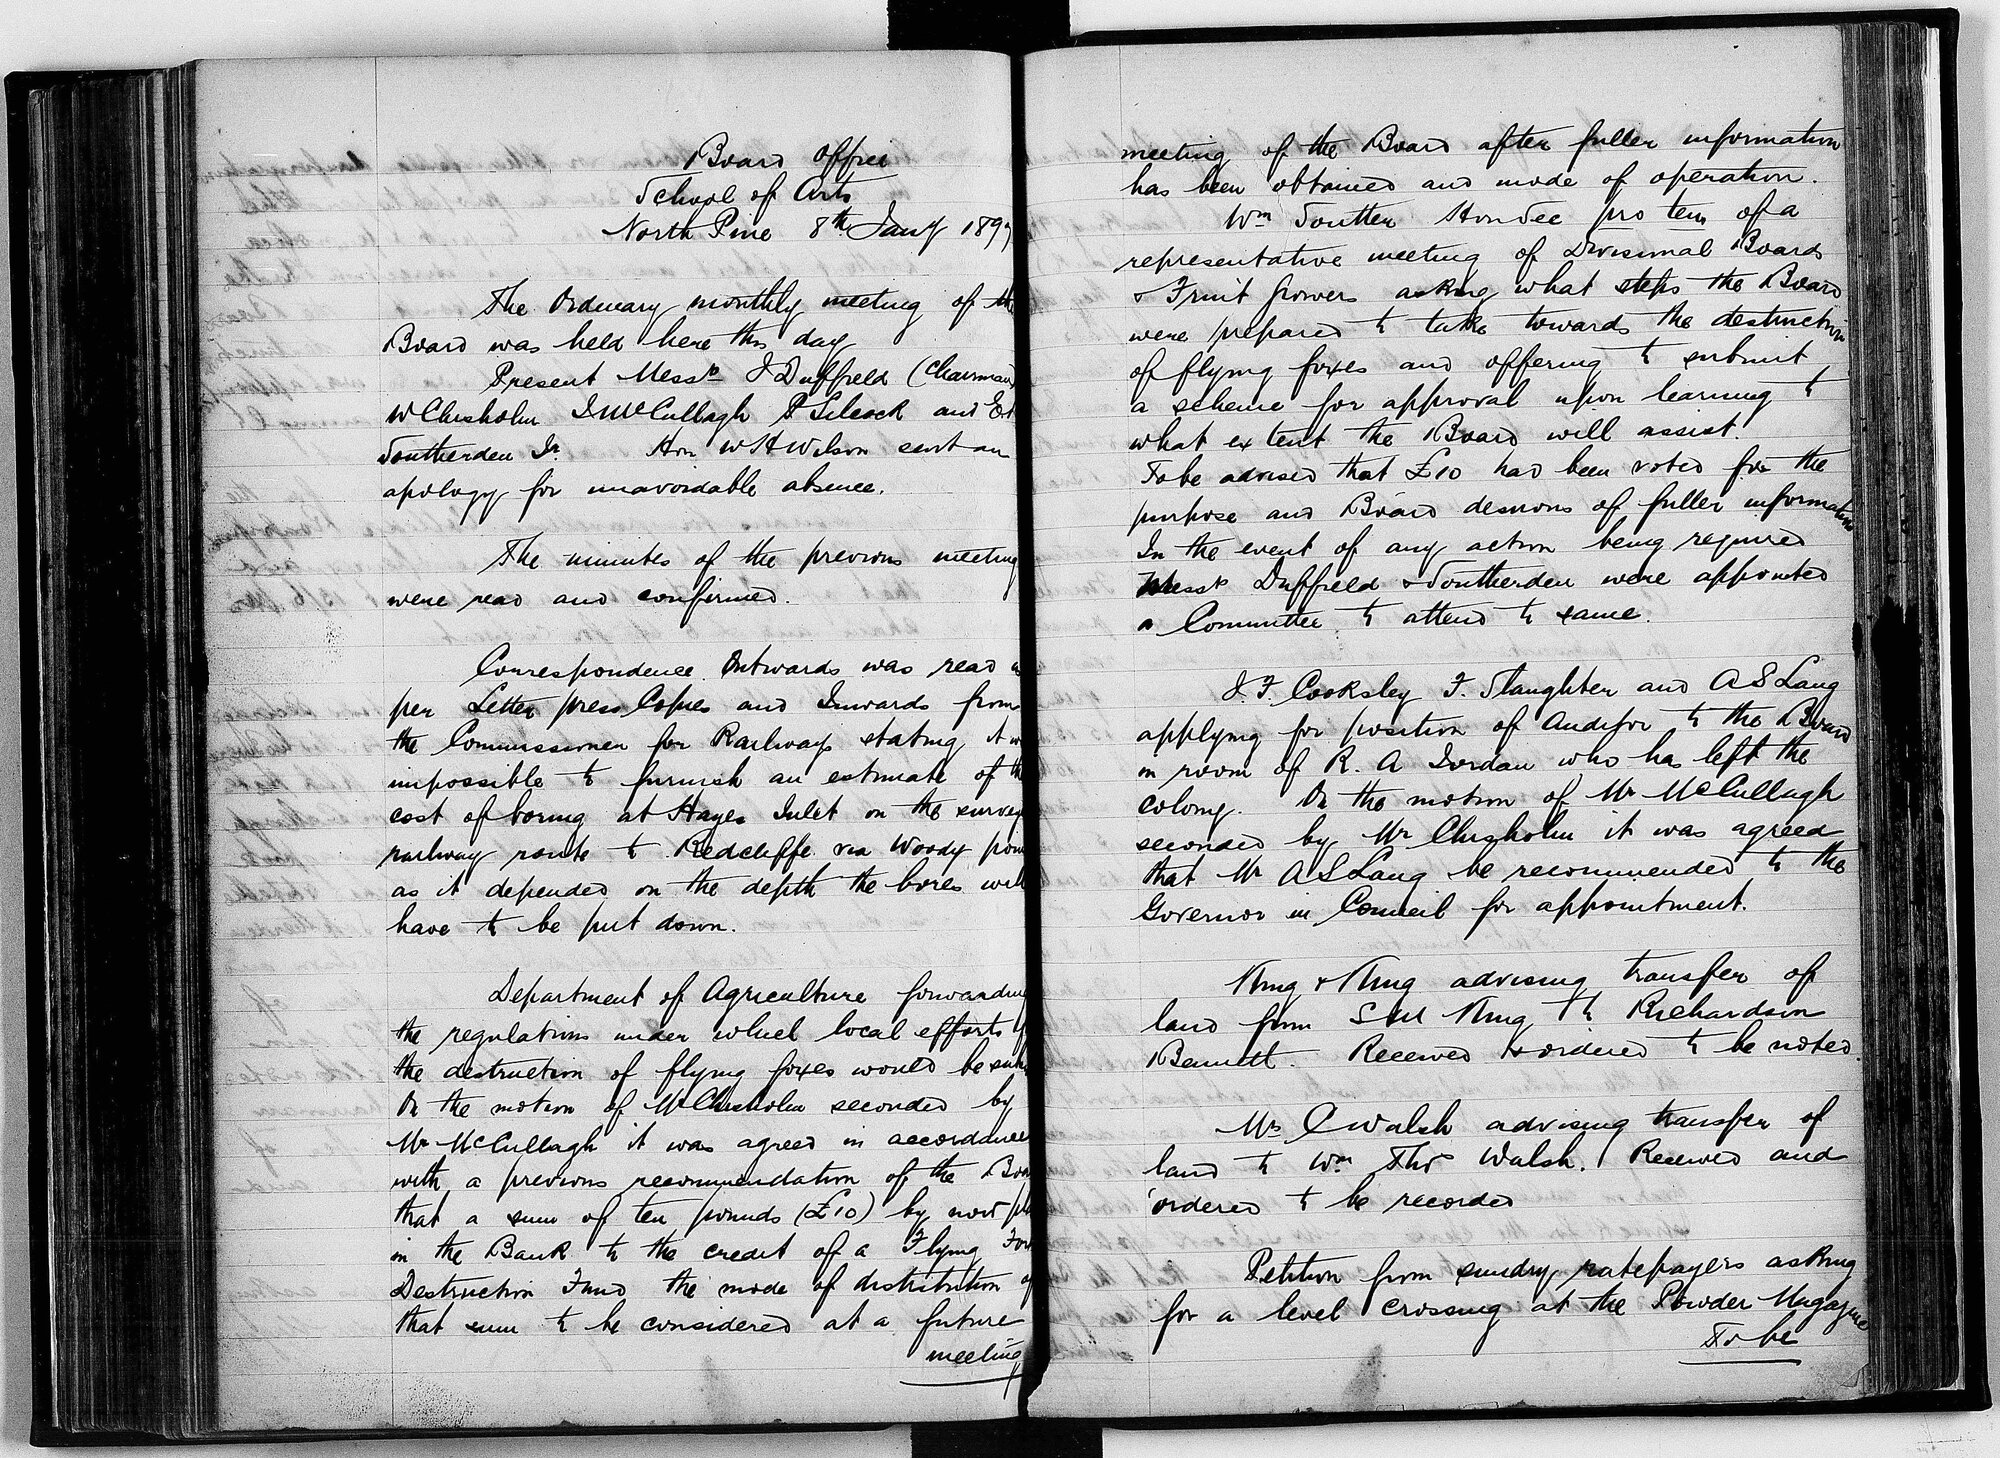 Board Office
School of Arts
North Pine 8th Jany 189
The Ordinary monthly meeting of the
Board was held here this day
Present Messrs J Duffield (Chairman
W Chisholm J McCullagh P Silcock and Ed
Southerden Jr. Hon W H Wilson sent an
apology for unavoidable absence.
The minutes of the previous meeting
were read and confirmed.
Correspondence Outwards was read as
per Letter press Copies and Inwards from
the Commissioner for Railways stating it w
impossible to furnish an estimate of the
cost of boring at Hayes Inlet on the survey
railway route to Redcliffe via Woody poin
as it depended on the depth the bores will
have to be put down.
Department of Agriculture forwarding
the regulations under which local efforts f
the destruction of flying foxes would be
On the motion of Mr Chisholm seconded by
Mr McCullagh it was agreed in accordance
with a previous recommendation of the Boar
that a sum of ten pounds (£10) by now pla
in the Bank to the credit of a Flying Fox
Destruction Fund the mode of distribution of
that sum to be considered at a future
meeting
meeting of the Board after fuller information
has been obtained and mode of operation.
Wm Soutter Hon Sec pro tem of a
representative meeting of Divisional Boards
& Fruit Growers asking what steps the Board
were prepared to take towards the destruction
of flying foxes and offering to submit
a scheme for approval upon learning to
what extent the Board will assist.
To be advised that £10 had been voted for the
purpose and Board desirous of fuller information
In the event of any action being required
Messrs Duffield & Southerden were appointed
a Committee to attend to same.
J. F. Cooksley F. Slaughter and A S Lang
applying for position of Auditor to the Board
in room of R. A Jordan who has left the
colony. On the motion of Mr McCullagh
seconded by Mr Chisholm it was agreed
that Mr A S Lang be recommended to the
Governor in Council for appointment.
King & King advising transfer of
land from S W King to Richardson
Bennett. Received & ordered to be noted.
Mrs C Walsh advising transfer of
land to Wm Thos Walsh. Received and
ordered to be recorded
Petition from sundry ratepayers asking
for a level crossing at the Powder Magazine
To be